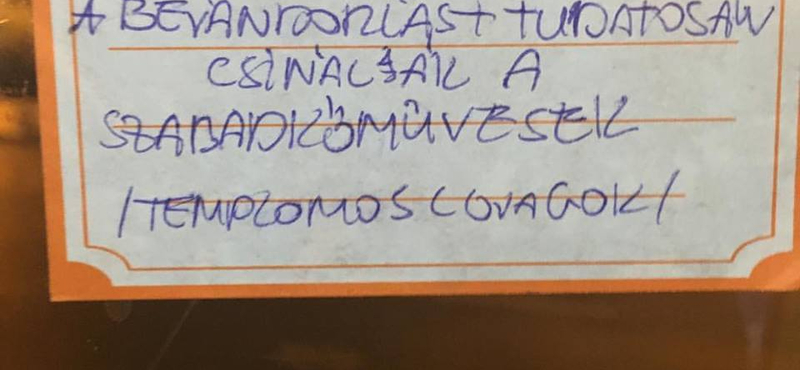 A BEVÁNDORLÁST TUDATOSAN
CSINÁLJÁK A
SZABADKŐMŰVESEK
/TEMPLOMOS LOVAGOK/